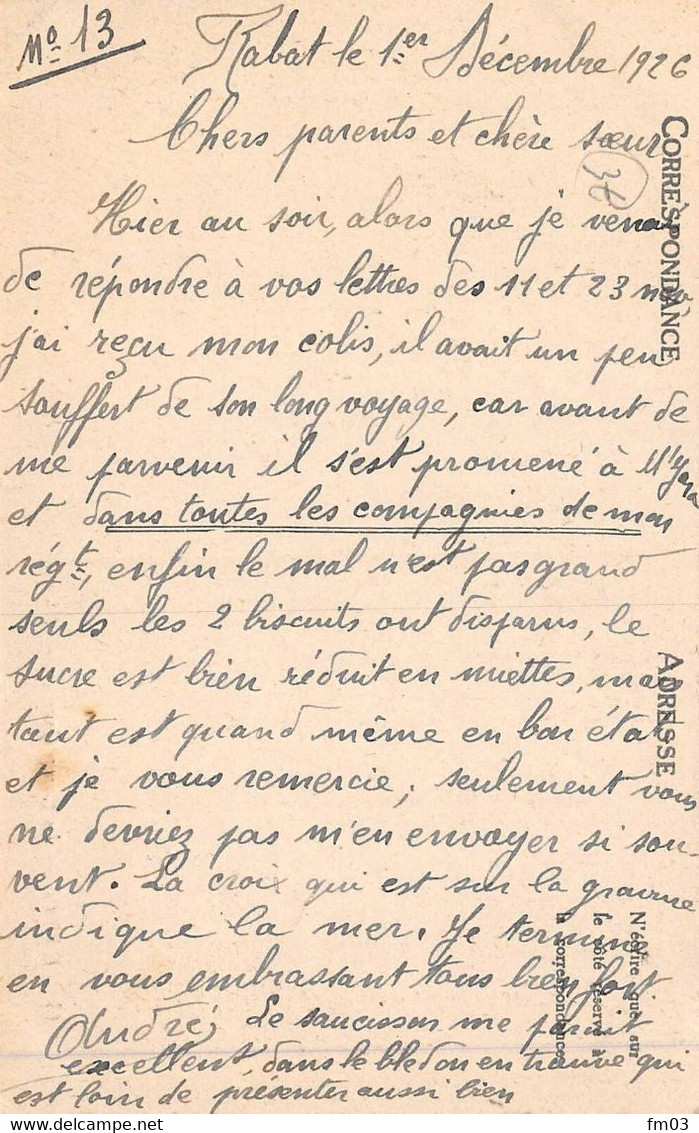 No 13
Rabat le 1er Décembre 1926
Chers parents et chère sœur
38
Hier au soir, alors que je venais
de répondre à vos lettres des 11 et 23 nov,
j'ai reçu mon colis, il avait un peu
souffert de son long voyage, car avant de
me parvenir il s'est promené à
et dans toutes les compagnies de mon
régt, enfin le mal n'est pas grand
seuls les 2 biscuits ont disparus, le
sucre est bien réduit en miettes, mais
tout est quand même en bon état
et je vous remercie, seulement vous
ne devriez pas m'en envoyer si sou-
vent. La croix qui est sur la gravure
indique la mer. Je termine
en vous embrassant tous bien fort.
André, Le saucisson me parait
excellent, dans le bled on en trouve qui
est loin de présenter aussi bien
CORRESPONDANCE
ADRESSE
N'écrire que sur
le côté réservé à
la correspondance
fm03